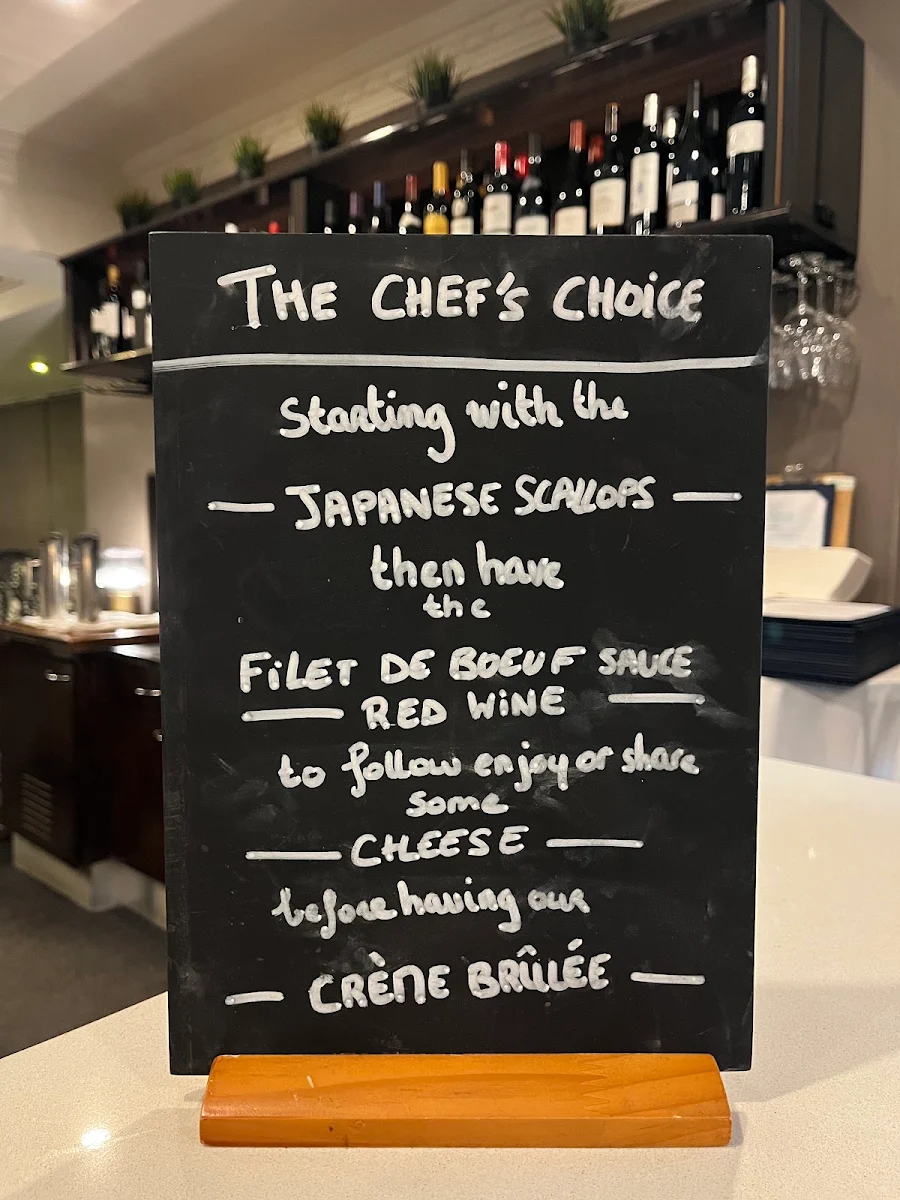 THE CHEF'S CHOICE
Starting with the
— JAPANESE SCALLOPS —
then have
the
FILET DE BOEUF SAUCE
— RED WINE —
to follow enjoy or share
some
— CHEESE —
before having our
— CRÈME BRÛLÉE —